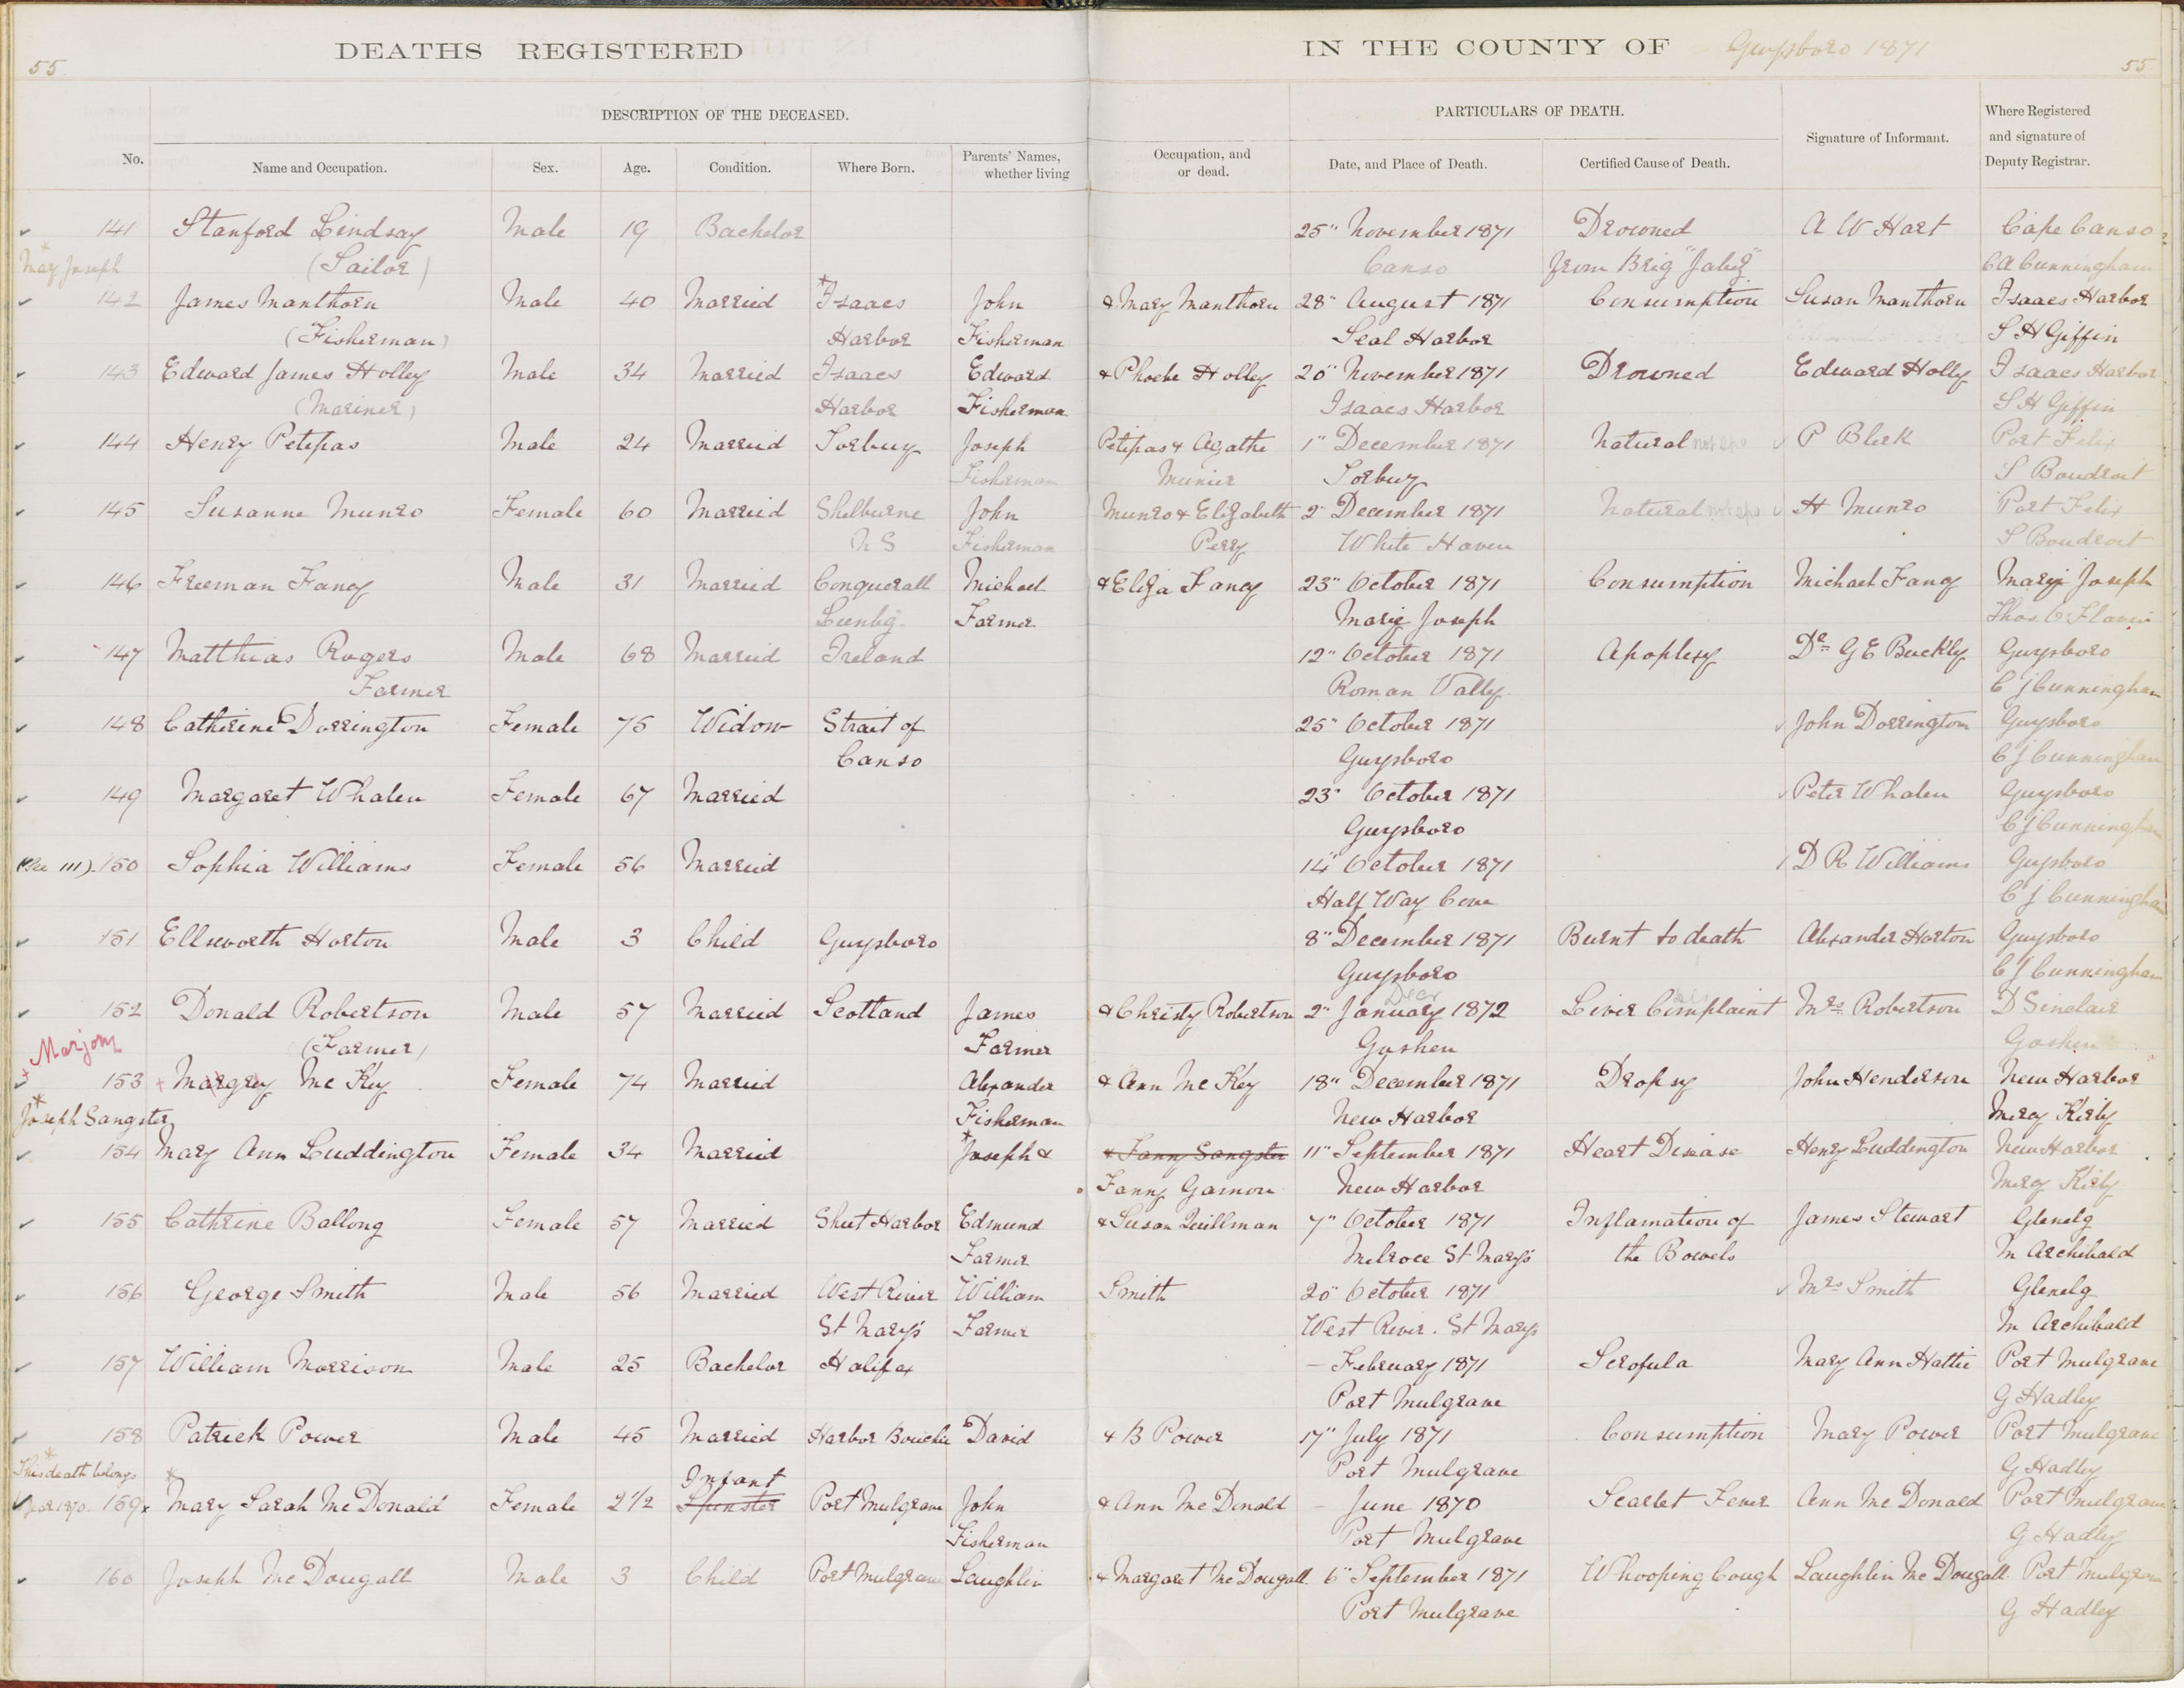 DEATHS REGISTERED IN THE COUNTY OF Guysboro 1871
55 55
DESCRIPTION OF THE DECEASED. PARTICULARS OF DEATH.
No. Name and Occupation. Sex. Age. Condition. Where Born. Parents' Names, whether living Occupation, and or dead. Date, and Place of Death. Certified Cause of Death. Signature of Informant. Where Registered and signature of Deputy Registrar.
141 Stanford Lindsay Male 19 Bachelor 25" November 1871 Drowned A W Hart Cape Canso
* Mary Joseph (Sailor) Canso from Brig "Jabez" C A Cunningham
142 James Manthorn Male 40 Married * Isaacs John & Mary Manthorn 28" August 1871 Consumption Susan Manthorn Isaacs Harbor
(Fisherman) Harbor Fisherman Seal Harbor S H Giffin
143 Edward James Holley Male 34 Married Isaacs Edward & Phoebe Holley 20" November 1871 Drowned Edward Holly Isaacs Harbor
(Mariner) Harbor Fisherman Isaacs Harbor S H Giffin
144 Henry Petipas Male 24 Married Torbuy Joseph Petipas & Agathe 1" December 1871 Natural P Blerk Port Felix
Fisherman Meunier Torbuy S Boudroit
145 Susanne Munro Female 60 Married Shelburne John Munro & Elizabeth 2" December 1871 Natural H Munro Port Felix
N S Fisherman Perry White Haven S Boudroit
146 Freeman Fancy Male 31 Married Conquerall Michael & Eliza Fancy 23" October 1871 Consumption Michael Fancy Marie Joseph
Lunbg. Farmer Marie Joseph Thos. O.
147 Matthias Rogers Male 68 Married Ireland 12" October 1871 Apoplexy Dr G E Buckly Guysboro
Farmer Roman Vally C J Cunningham
148 Catherine Dorrington Female 75 Widow Strait of 25" October 1871 John Dorrington Guysboro
Canso Guysboro C J Cunningham
149 Margaret Whalen Female 67 Married 23" October 1871 Peter Whalen Guysboro
Guysboro C J Cunningham
(See 111). 150 Sophia Williams Female 56 Married 14" October 1871 D R Williams Guysboro
Half Way Cove C J Cunningham
151 Ellsworth Horton Male 3 Child Guysboro 8" December 1871 Burnt to death Alexander Horton Guysboro
Guysboro C J Cunningham
152 Donald Robertson Male 57 Married Scotland James & Christy Robertson 2" January 1872 Liver Complaint Mrs Robertson D Sinclair
Marjory (Farmer) Farmer Goshen Goshen
153 + Margrey Mc Key Female 74 Married Alexander & Ann Mc Key 18" December 1871 Dropsy John Henderson New Harbor
* Joseph Sangster Fisherman New Harbor Mercy Kirby
154 Mary Ann Luddington Female 34 Married * Joseph & & Fanny Sangster 11" September 1871 Heart Disease Henry Luddington New Harbor
Fanny Gamon New Harbor Mercy Kirby
155 Cathrine Ballong Female 57 Married Sheet Harbor Edmund & Susan Quillman 7" October 1871 Inflamation of James Stewart Glenelg
Farmer Melroce St Mary's the Bowels M Archibald
156 George Smith Male 56 Married West River William Smith 20" October 1871 Mrs Smith Glenelg
St Mary's Farmer West River. St Marys M Archibald
157 William Morrison Male 25 Bachelor Halifax – February 1871 Scrofula Mary Ann Hattie Port Mulgrave
Port Mulgrave G Hadley
158 Patrick Power Male 45 Married Harbor Bouchie David & B Power 17" July 1871 Consumption Mary Power Port Mulgrave
* This death belongs * Infant Port Mulgrave G Hadley
Year 1870. 159x Mary Sarah Mc Donald Female 2 1/2 Spinster Port Mulgrave John & Ann Mc Donald – June 1870 Scarlet Fever Ann Mc Donald Port Mulgrave
Fisherman Port Mulgrave G Hadley
160 Joseph Mc Dougall Male 3 Child Port Mulgrave Laughlin & Margaret Mc Dougall 6" September 1871 Whooping Cough Laughlin Mc Dougall Port Mulgrave
Port Mulgrave G Hadley